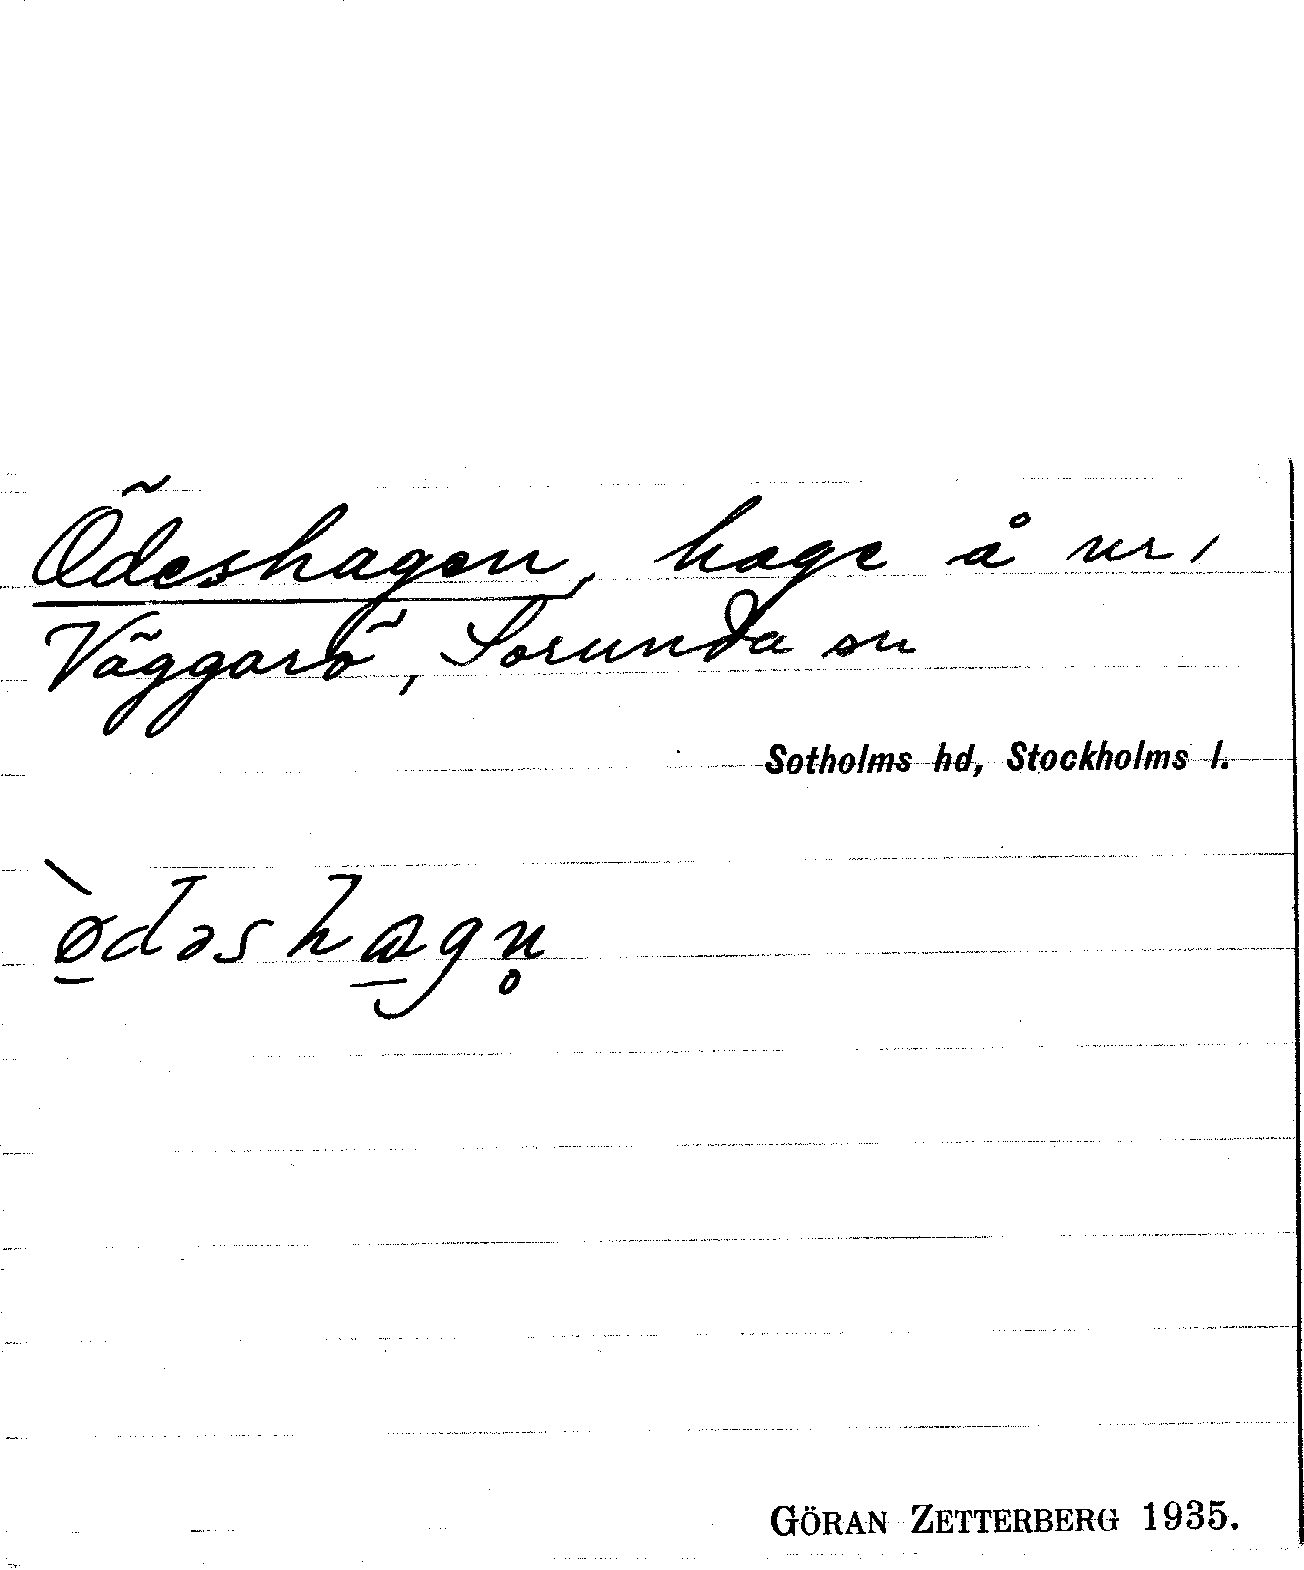 Ödeshagen, hage å nr 1
Väggarö, Sorunda sn
Sotholms hd, Stockholms l.
ø̀dəshagn̥
GÖRAN ZETTERBERG 1935.